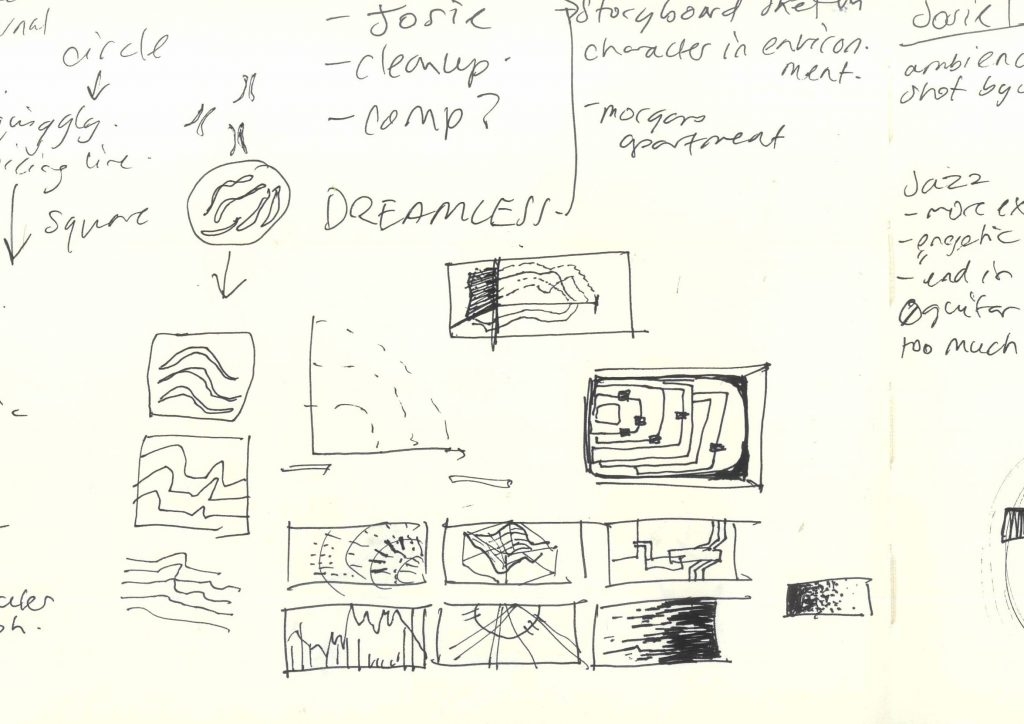 circle
square
- Josie
- cleanup.
- comp?
DREAMLESS
Storyboard sketch
character in environ.
ment.
- morgans
apartment
Josie
shot by
Jazz
- more ex
- energetic
- end in
guitar
too much